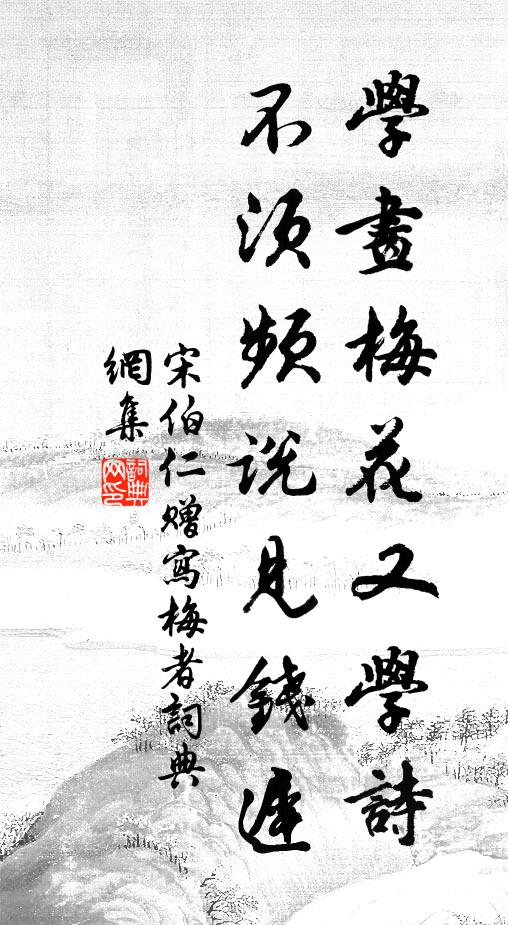 學畫梅花又學詩
不須頻說見錢遲
宋伯仁贈寫梅者詞典
網集
詞典
網印